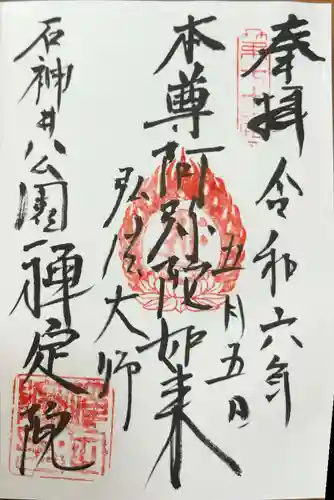 奉拝
令和六年
五月五日
本尊阿弥陀如来
弘法大師
石神井公園
禅定院